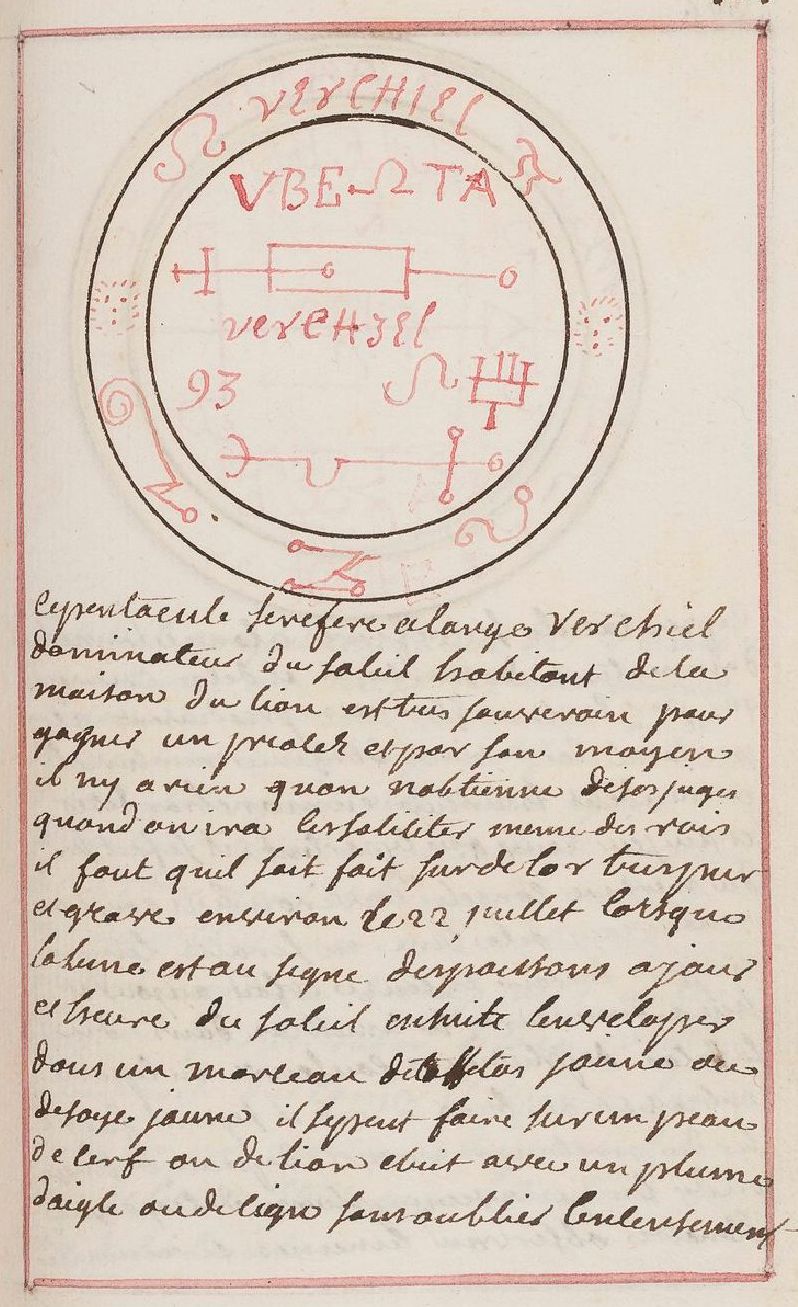 verCHIEL
VBE ♌ TA
verCHZEl
93
cepentacule serefere alange Verchiel
dominateur du soleil habitant de la
maison du lion est tres souverain pour
gagner un procez et par son moyen
il ny a rien quon nobtienne deses juges
quand on ira les soliliter meme des rois
il faut quil soit fait sur de lor tres pur
et grave environ le 22 juillet lorsque
la lune est au signe despoissons a jour
et heure du soleil ensuite lenveloper
dans un morceau de taffetas jaune ou
de soye jaune il sepeut faire sur un peau
de cerf ou de lion ecrit avec un plume
daigle ou de cigne sans oublier